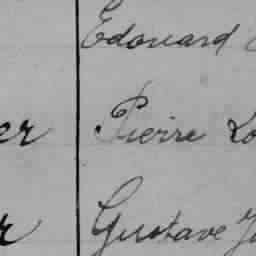 Edouard
er Pierre Lo
r Gustave J